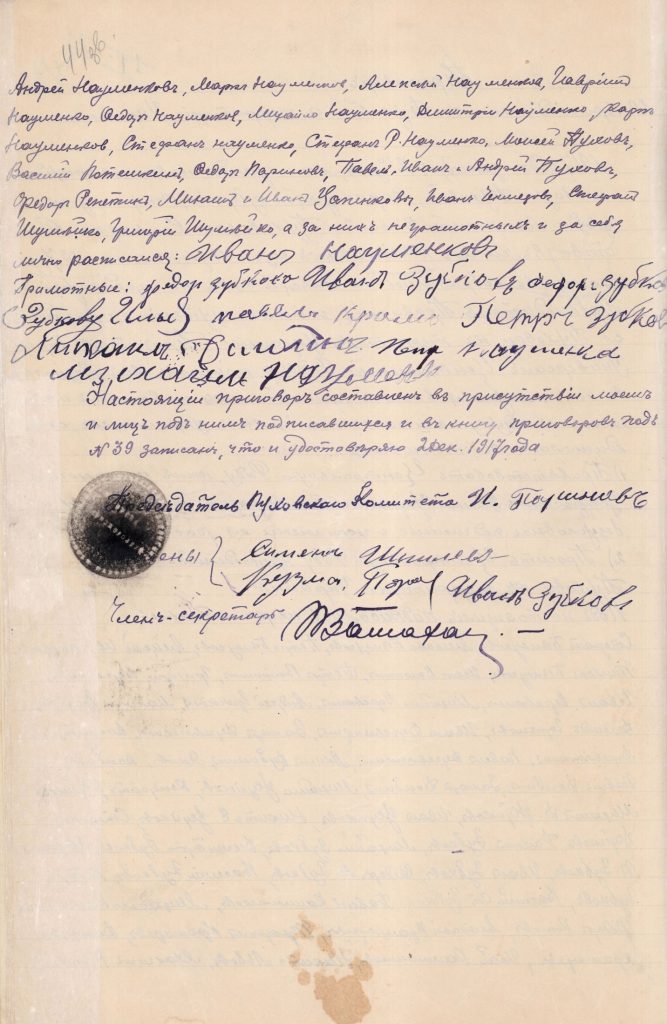 44 об
Андрей Науменковъ, Маркъ Науменков, Алексей Науменков, Гаврiил
Науменко, Федоръ Науменков, Михайло Науменко, Димитрiй Науменко, Карп
Науменков, Стефанъ Науменко, Стефанъ Р. Науменко, Моисей Пуховъ,
Василiй Потешкинъ, Федоръ Париновъ, Павелъ, Иванъ и Андрей Пуховъ,
Федоръ Репеткинъ, Михаилъ и Иванъ Цапенковы, Иванъ Стефан
Шумейко, Григорiй Шумейко, а за нихъ неграмотныхъ и за себя
лично расписался: Иванъ Науменковъ
Грамотные: федоръ зубкова Иванъ Зубковъ федоръ зубков
Зубковъ Илья павелъ Петръ зубков
науменка
михаил науменк
Настоящiй приговоръ составленъ въ присутствiи моемъ
и лицъ подъ нимъ подписавшихся и въ книгу приговоровъ подъ
№ 39 записанъ, что и удостоверяю 2 дек. 1917 года
Председатель Пуховскаго Комитета И. Париновъ
Члены Сименъ
Кузма Иванъ Зубковъ
Членъ-секретарь